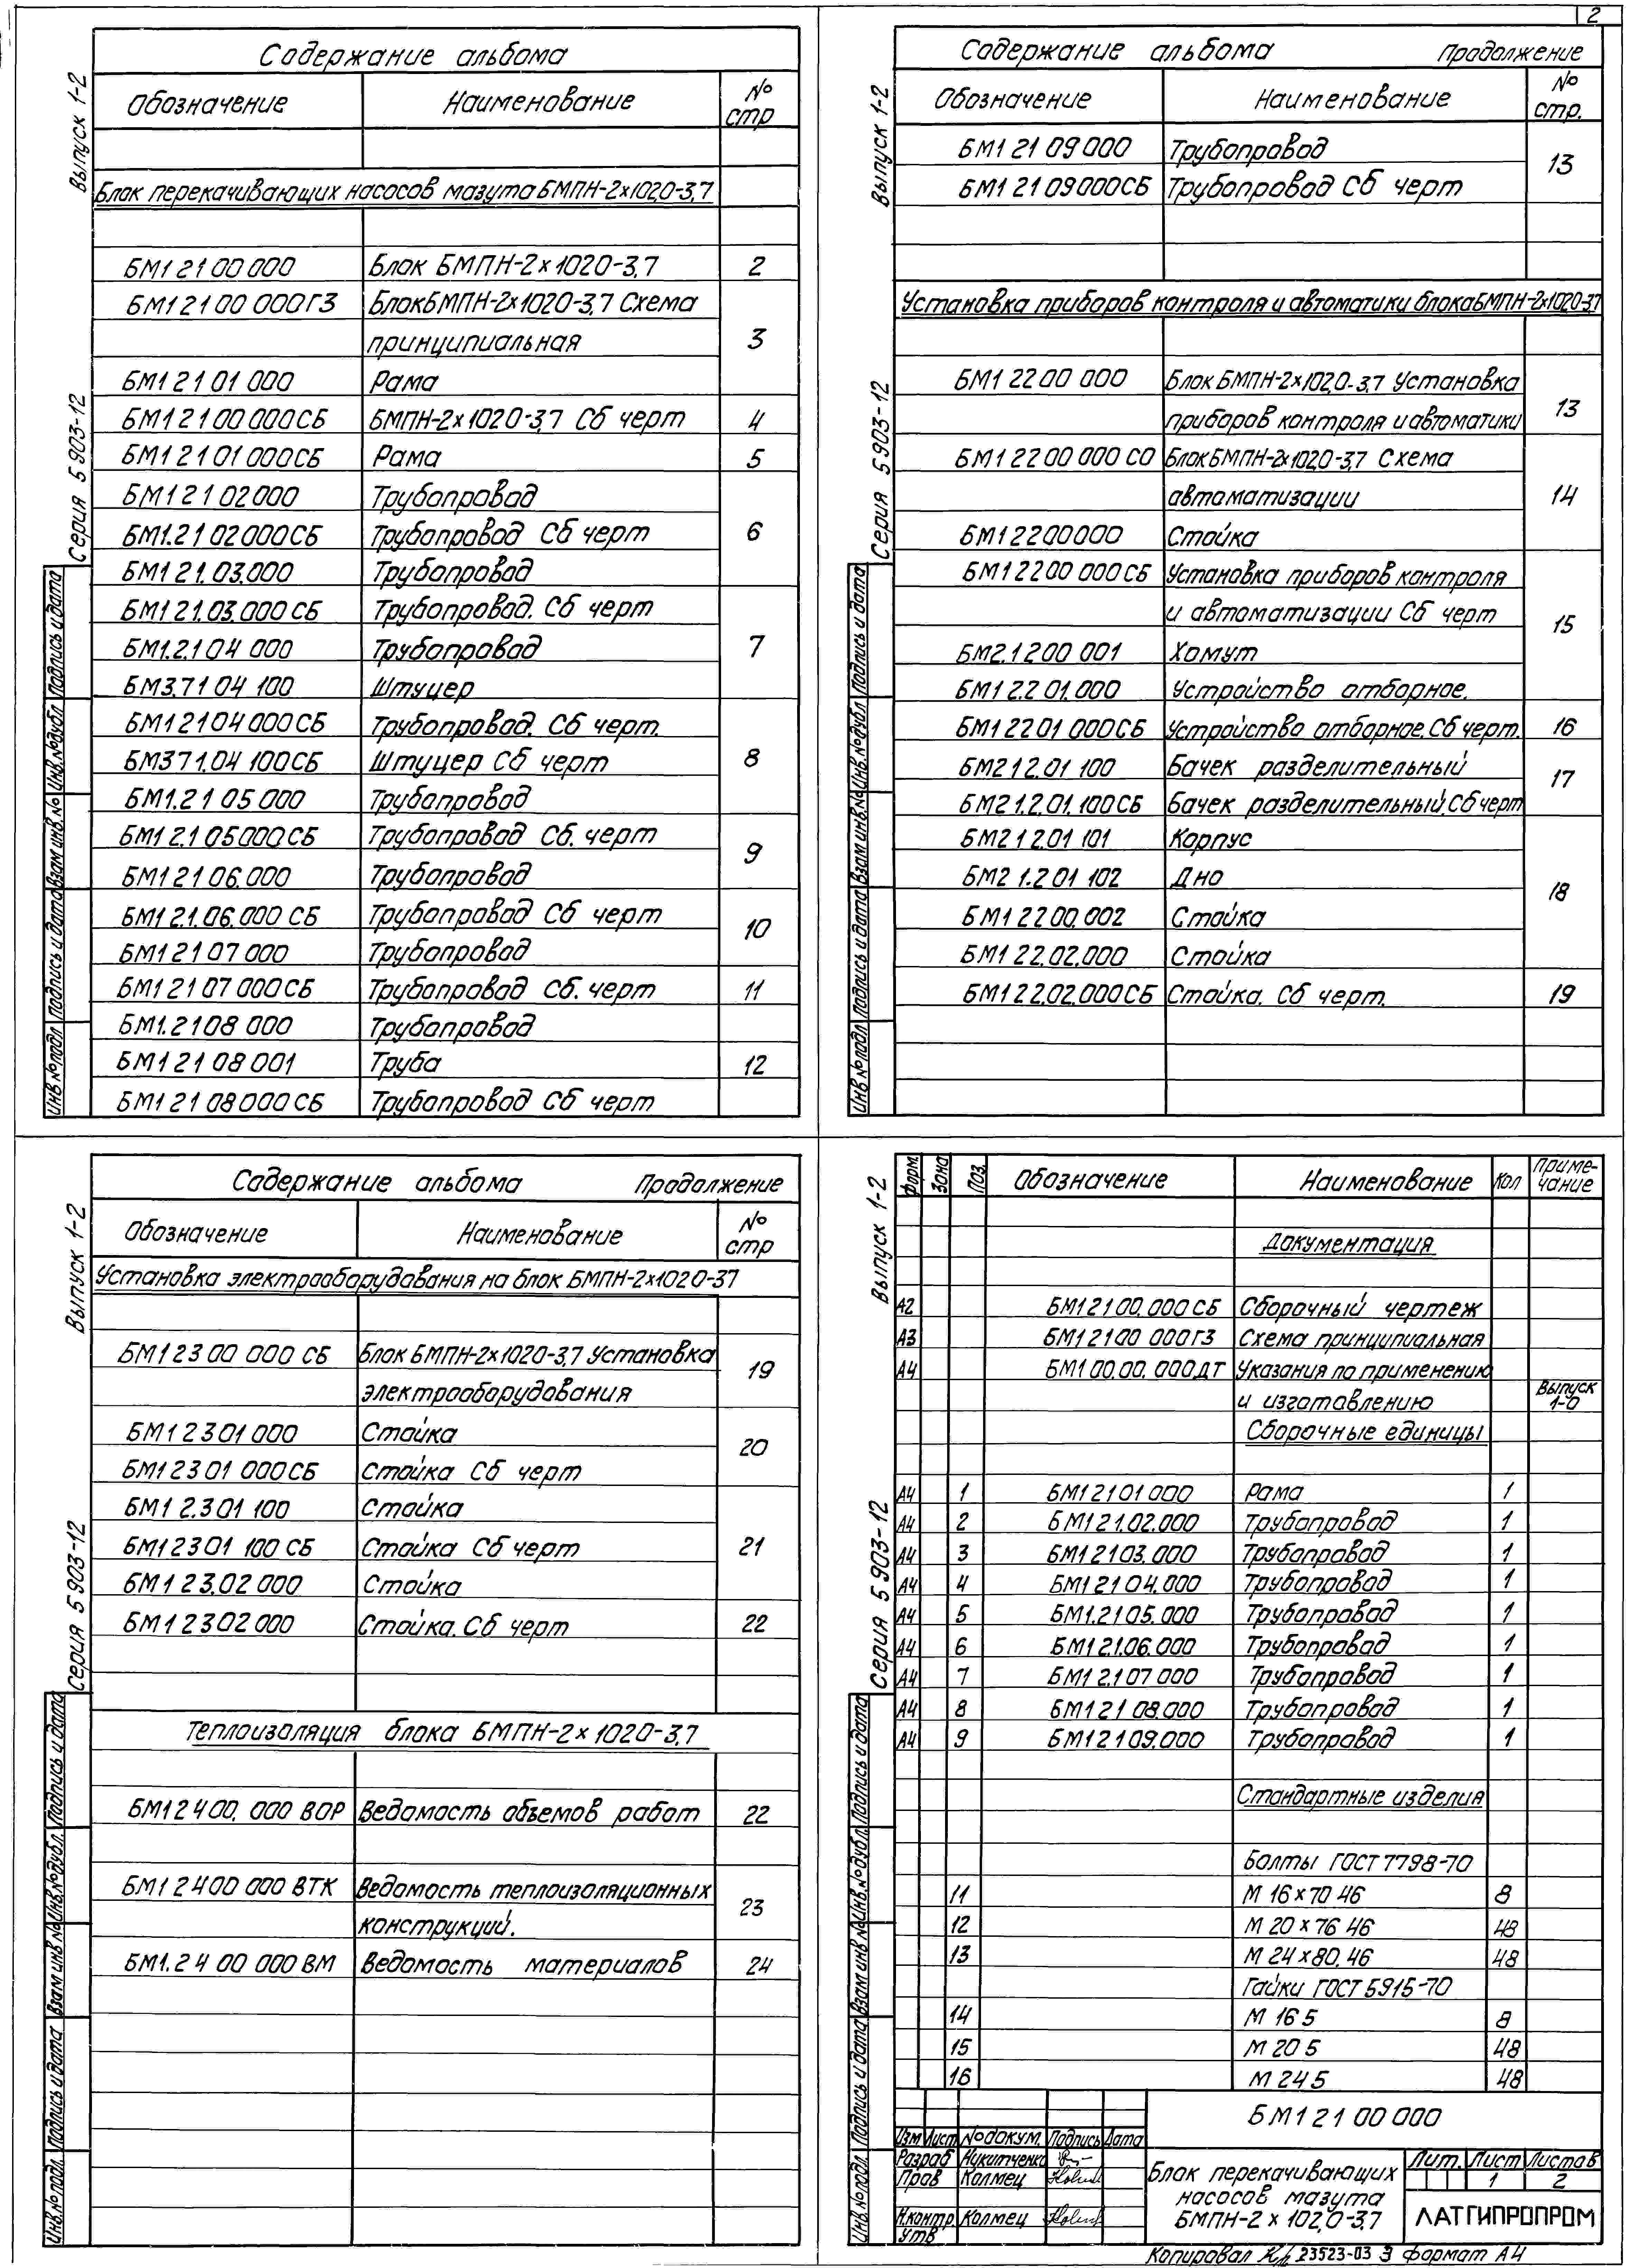 2
Содержание альбома
Обозначение Наименование № стр
Блок перекачивающих насосов мазута БМПН-2х102,0-3,7
БМ1 21 00 000 Блок БМПН-2х1020-3,7 2
БМ1 21 00 000Г3 Блок БМПН-2х1020-3,7 Схема
принципиальная 3
БМ1 21 01 000 Рама
БМ1 21 00 000СБ БМПН-2х1020-3,7 Сб черт 4
БМ1 21 01 000СБ Рама 5
БМ1 21 02 000 Трубопровод
БМ1.21 02 000СБ Трубопровод Сб черт 6
БМ1 21.03.000 Трубопровод
БМ1 21.03.000 СБ Трубопровод. Сб черт
БМ1.2.1 04 000 Трубопровод 7
БМ3.71 04 100 Штуцер
БМ1 21 04 000 СБ Трубопровод. Сб черт.
БМ3 71.04 100СБ Штуцер Сб черт 8
БМ1.21 05 000 Трубопровод
БМ1 2.1 05 000 СБ Трубопровод Сб. черт
9
БМ1 21 06.000 Трубопровод
БМ1 2.1.06.000 СБ Трубопровод Сб черт
10
БМ1 21 07 000 Трубопровод
БМ1 21 07 000СБ Трубопровод Сб. черт 11
БМ1.21 08 000 Трубопровод
БМ1 21 08 001 Труба 12
БМ1 21 08 000 СБ Трубопровод Сб черт
Выпуск 1-2
Серия 5 903-12
Инв № подл Подпись и дата Взам инв. № Инв. № дубл Подпись и дата
Содержание альбома Продолжение
Обозначение Наименование № стр.
БМ1 21 09 000 Трубопровод
13
БМ1 21 09 000СБ Трубопровод Сб черт
Установка приборов контроля и автоматики блока БМПН-2х1020-37
БМ1 22 00 000 Блок БМПН-2х102,0-3,7 Установка
приборов контроля и автоматики 13
БМ1 22 00 000 СО Блок БМПН-2х102,0-3,7 Схема
автоматизации 14
БМ1 22 00 000 Стойка
БМ1 22 00 000 СБ Установка приборов контроля
и автоматизации Сб черт
15
БМ2.1 2 00 001 Хомут
БМ1 2.2 01.000 Устройство отборное.
БМ1 22 01 000СБ Устройство отборное. Сб черт. 16
БМ2 1 2.01 100 Бачек разделительный
17
БМ2 1.2.01.100СБ Бачек разделительный. Сб черт
БМ2 1 2.01 101 Корпус
БМ2 1.2 01 102 Дно
18
БМ1 22 00.002 Стойка
БМ1 22.02.000 Стойка
БМ1 22.02.000 СБ Стойка. Сб черт. 19
Выпуск 1-2
Серия 5 903-12
Инв № подл Подпись и дата Взам инв. № Инв. № дубл Подпись и дата
Содержание альбома Продолжение
Обозначение Наименование № стр
Установка электрооборудования на блок БМПН-2х1020-37
БМ1 23 00 000 СБ Блок БМПН-2х1020-3,7 Установка
19
электрооборудования
БМ1 23 01 000 Стойка
20
БМ1 23 01 000 СБ Стойка Сб черт
БМ1 2.3 01 100 Стойка
БМ1 23 01 100 СБ Стойка Сб черт 21
БМ1 23.02 000 Стойка
БМ1 23 02 000 Стойка. Сб черт 22
Теплоизоляция блока БМПН-2х1020-3,7
БМ1 2 4 00. 000 ВОР Ведомость объемов работ 22
БМ1 2 4 00 000 ВТК Ведомость теплоизоляционных
23
конструкций.
БМ1.2 4 00 000 ВМ Ведомость материалов 24
Выпуск 1-2
Серия 5 903-12
Инв. № подл. Подпись и дата Взам инв № Инв. № дубл. Подпись и дата
Форм. Зона Поз. Обозначение Наименование Кол Приме-
чание
Документация
А2 БМ1 21 00.000 СБ Сборочный чертеж
А3 БМ1 21 00 000 Г3 Схема принципиальная
А4 БМ1 00.00. 000.ДТ Указания по применению
и изготовлению Выпуск 1-0
Сборочные единицы
А4 1 БМ1 21 01 000 Рама 1
А4 2 БМ1 21.02.000 Трубопровод 1
А4 3 БМ1 21 03.000 Трубопровод 1
А4 4 БМ1 21 04.000 Трубопровод 1
А4 5 БМ1.21 05.000 Трубопровод 1
А4 6 БМ1 2.1.06.000 Трубопровод 1
А4 7 БМ1 2.1 07 000 Трубопровод 1
А4 8 БМ1 2 1 08.000 Трубопровод 1
А4 9 БМ1 2 1 09.000 Трубопровод 1
Стандартные изделия
Болты ГОСТ 7798-70
11 М 16х70 46 8
12 М 20х76 46 48
13 М 24х80.46 48
Гайки ГОСТ 5915-70
14 М 16 5 8
15 М 20 5 48
16 М 24 5 48
Выпуск 1-2
Серия 5 903-12
Инв. № подл. Подпись и дата Взам инв № Инв. № дубл. Подпись и дата
БМ1 21 00 000
Изм Лист № докум. Подпись Дата
Разраб Никитченко
Пров Колмец
Н.контр. Колмец
Утв
Блок перекачивающих
насосов мазута
БМПН-2х102,0-3,7
Лит. Лист Листов
1 2
ЛАТГИПРОПРОМ
Копировал 23523-03 3 формат А4